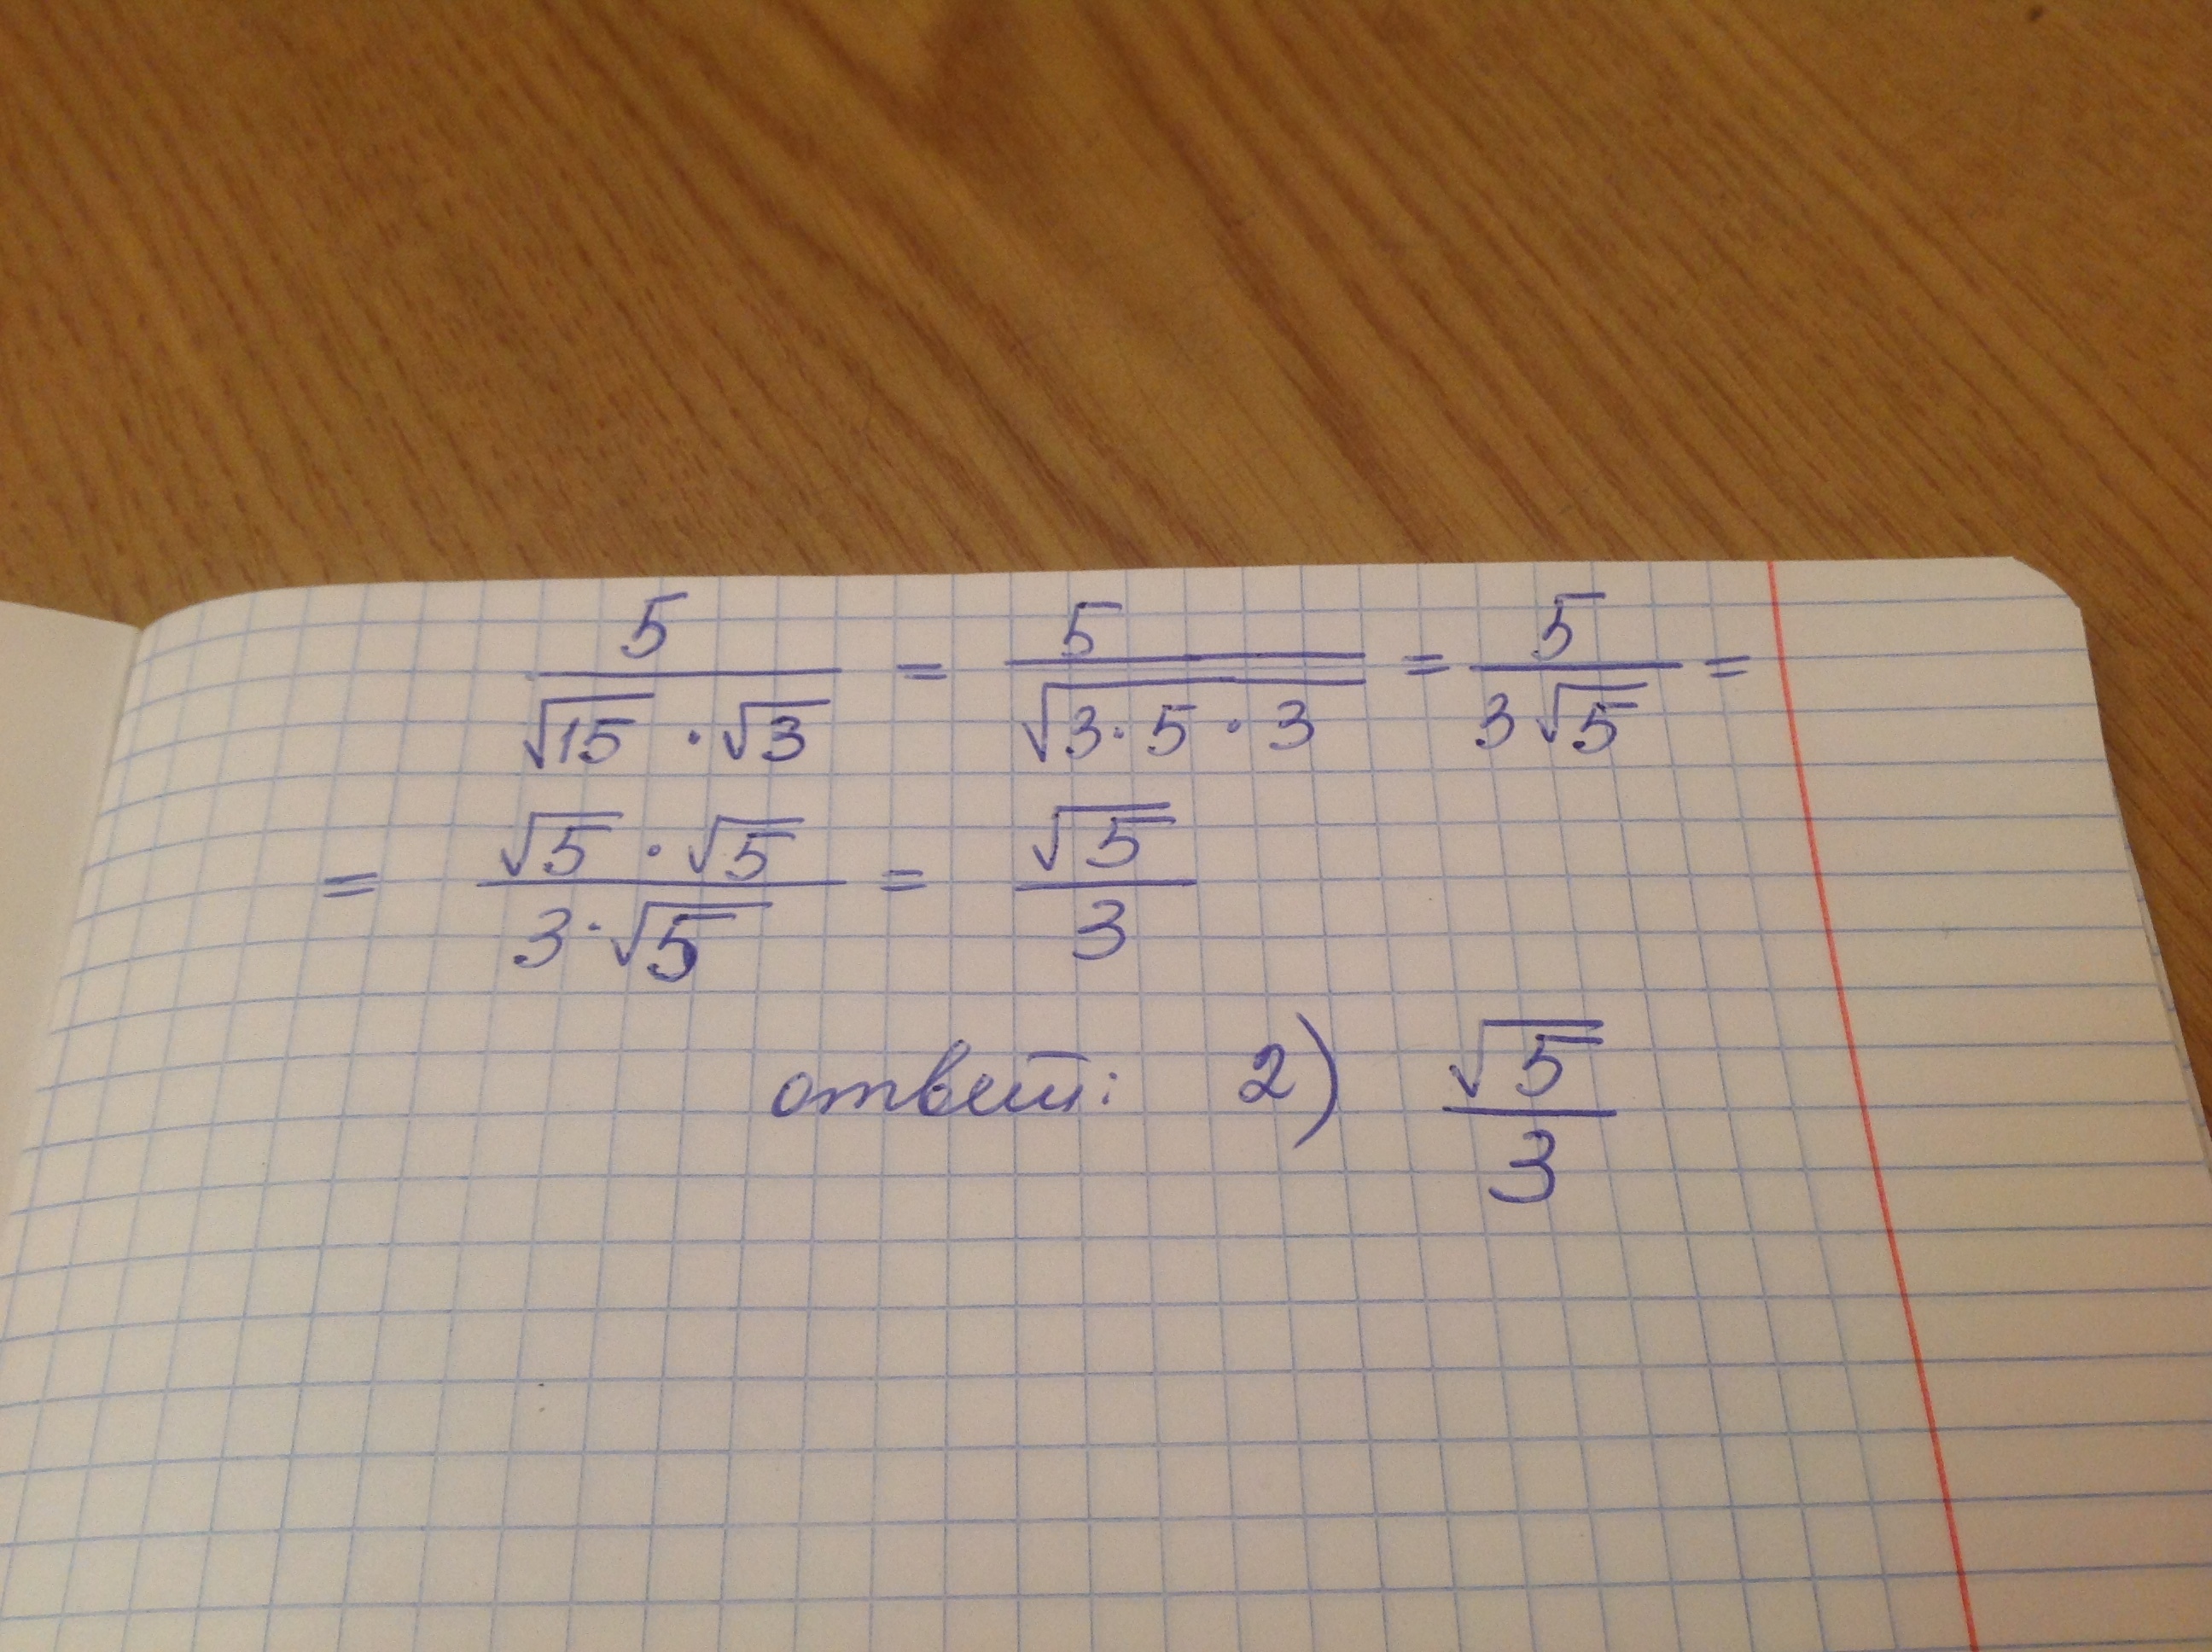 5/(√15 · √3) = 5/√(3 · 5 · 3) = 5/(3√5) =
= (√5 · √5)/(3 · √5) = √5/3
ответ: 2) √5/3